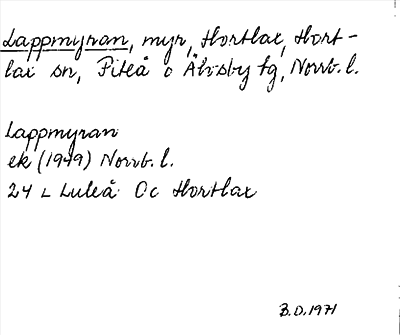 Lappmyran, myr, Hortlax, Hort-
lax sn, Piteå o Älvsby tg, Norrb. l.
Lappmyran
ek (1949) Norrb. l.
24 L Luleå Oc Hortlax
B.D. 1971